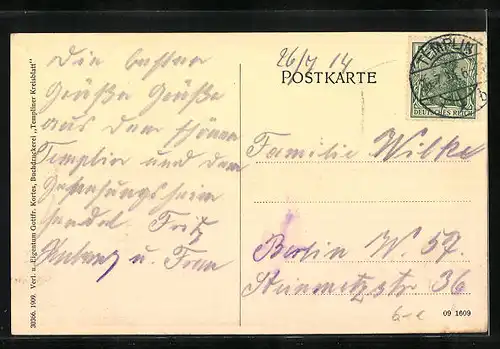 26/7 14
Die besten
Grüße Grüße
aus dem schönen
Templin und dem
Genesungsheim
sendet Fritz
u. Frau
POSTKARTE
TEMPLIN
DEUTSCHES REICH
Familie Wilke
Berlin W. 57.
Steinmetzstr 36
09 1609
30366. 1909. Verl. u. Eigentum Gottfr. Kortes, Buchdruckerei „Templiner Kreisblatt"